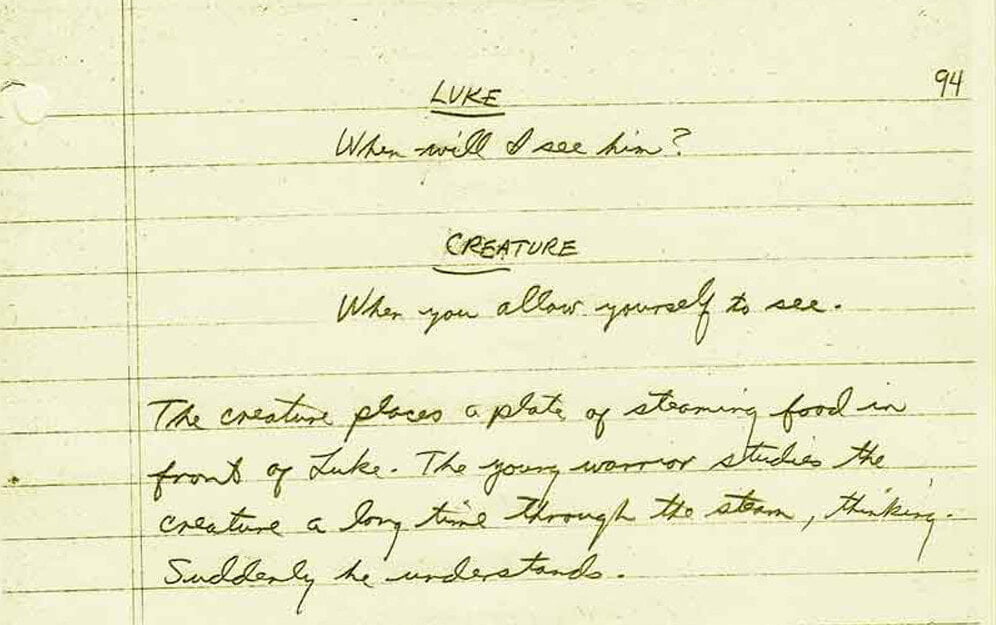 94
LUKE
When will I see him?
CREATURE
When you allow yourself to see.
The creature places a plate of steaming food in
front of Luke. The young warrior studies the
creature a long time through the steam, thinking.
Suddenly he understands.